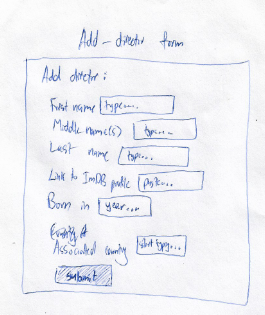 Add-director form
Add director:
First name type....
Middle name(s) type....
Last name type...
Link to ImDB profile paste...
Born in year...
Associated country start typing...
submit